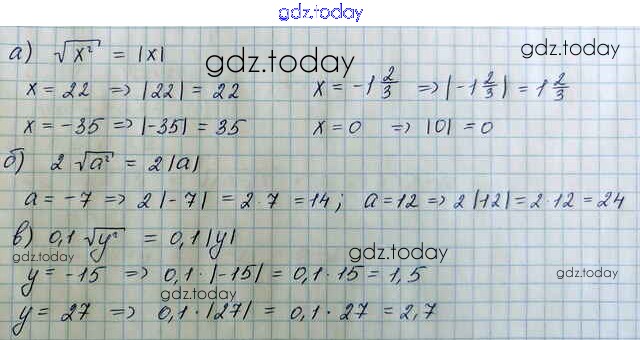 gdz.today
а) √x² = |x|
gdz.today
gdz.today
x = 22 => |22| = 22 x = -1 2/3 => |-1 2/3| = 1 2/3
x = -35 => |-35| = 35 x = 0 => |0| = 0
б) 2√a² = 2|a|
a = -7 => 2|-7| = 2·7 = 14; a = 12 => 2|12| = 2·12 = 24
в) 0,1√y² = 0,1|y|
gdz.today
gdz.today
y = -15 => 0,1·|-15| = 0,1·15 = 1,5
gdz.today
gdz.today
y = 27 => 0,1·|27| = 0,1·27 = 2,7